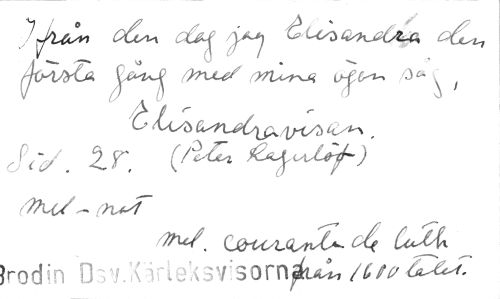 Ifrån den dag jag Elisandra den
första gång med mina ögon såg,
Elisandravisan.
Sid. 28. (Peter Lagerlöf)
mel-not
mel. courante de luth
Brodin Dsv.Kärleksvisorna från 1600 talet.